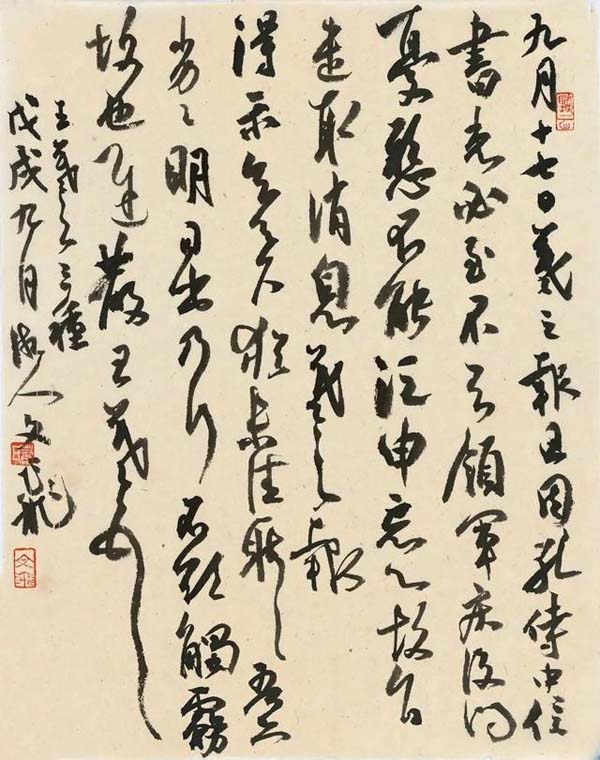 九月十七日羲之報且因孔侍中信
書想必至不知領軍疾後問
憂懸不能須臾忘心故旨
遣取消息羲之報
得示知足下猶未佳耿耿吾亦
劣劣明日出乃行不欲觸霧
故也遲散王羲之頓首
王羲之三種
戊戌九月